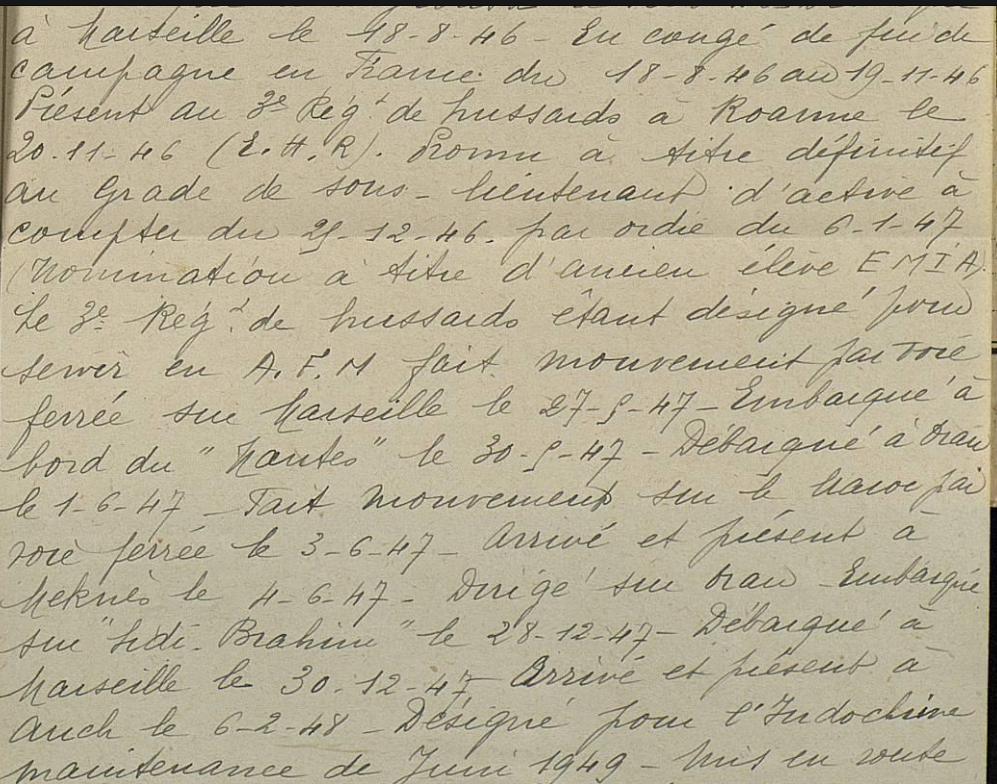 à Marseille le 18-8-46 - En congé de fin de
campagne en France du 18-8-46 au 19-11-46
Présent au 3e Régt de hussards à Roanne le
20.11-46 (E.H.R). Promu à titre définitif
au Grade de sous-lieutenant d'active à
compter du 25-12-46. par ordre du 6-1-47
(Nomination à titre d'ancien élève EMIA).
Le 3e Régt de hussards étant désigné pour
servir en A.F.N fait mouvement par voie
ferrée sur Marseille le 27-5-47 - Embarqué à
bord du "Nantes" le 30-5-47 - Débarqué à Oran
le 1-6-47 - Fait mouvement sur le Maroc par
voie ferrée le 3-6-47 - Arrivé et présent à
Meknès le 4-6-47 - Dirigé sur Oran - Embarqué
sur "Sidi-Brahim" le 28-12-47 - Débarqué à
Marseille le 30-12-47 Arrivé et présent à
Auch le 6-2-48 - Désigné pour l'Indochine
maintenance de Juin 1949 - Mis en route